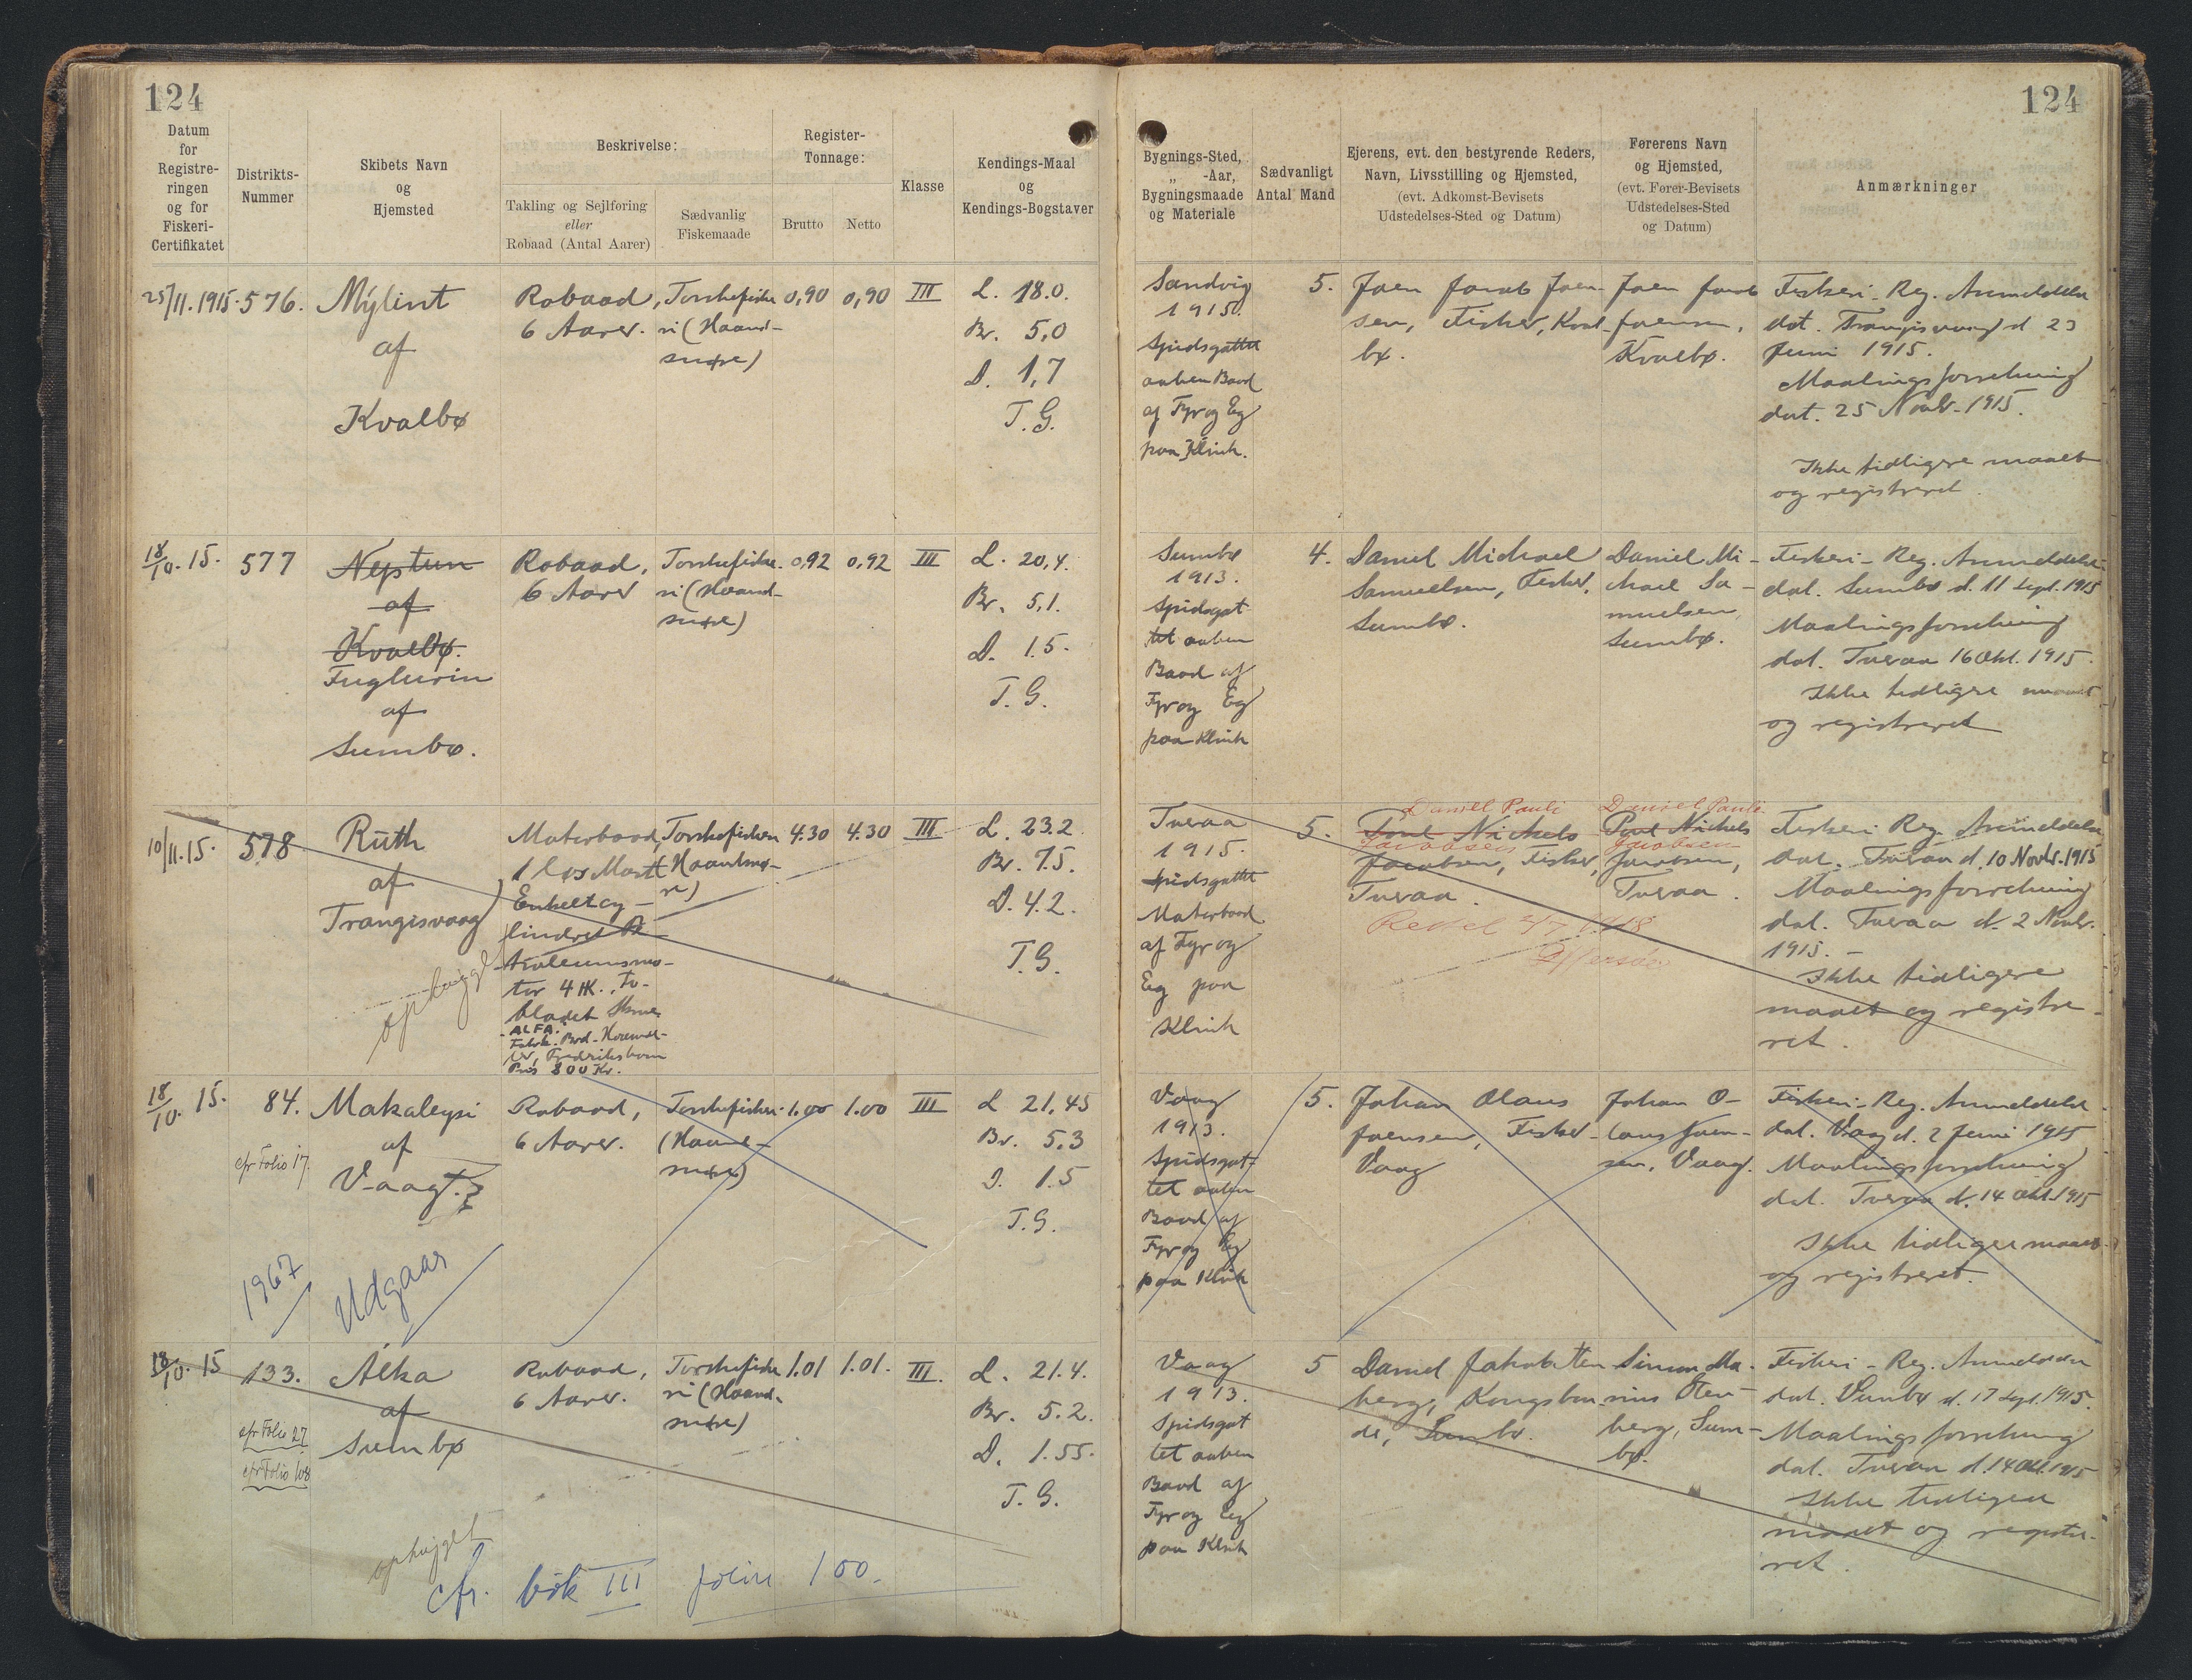 124
124
Datum
for
Registre-
ringen
og for
Fiskeri-
Certifikatet
Distrikts-
Nummer
Skibets Navn
og
Hjemsted
Beskrivelse:
Takling og Sejlføring
eller
Robaad (Antal Aarer)
Sædvanlig
Fiskemaade
Register-
Tonnage:
Brutto
Netto
Klasse
Kendings-Maal
og
Kendings-Bogstaver
Bygnings-Sted,
„ -Aar,
Bygningsmaade
og Materiale
Sædvanligt
Antal Mand
Ejerens, evt. den bestyrende Reders,
Navn, Livsstilling og Hjemsted,
(evt. Adkomst-Bevisets
Udstedelses-Sted og Datum)
Førerens Navn
og Hjemsted,
(evt. Fører-Bevisets
Udstedelses-Sted
og Datum)
Anmærkninger
25/11. 1915.
576.
Mýlint
af
Kvalbø
Robaad,
6 Aarer.
Torskefiske
ri (Haand-
snøre)
0,90
0,90
III
L. 18.0.
Br. 5,0
D. 1,7
T.G.
Sandvig
1915.
Spidsgattet
aaben Baad
af Fyr og Eg
paa Klink.
5.
Joen Jacob Joen-
sen, Fisker, Kval-
bø.
Joen Jacob
Joensen,
Kvalbø.
Fiskeri-Reg. Anmeldelse
dat. Trangisvaag d 23
Juni 1915.
Maalingsforretning
dat. 25 Novbr. 1915.
Ikke tidligere maalt
og registreret.
18/10. 15.
577
Neptun
af
Kvalbø.
Fuglurin
af
Sumbø.
Robaad,
6 Aarer
Torskefiske-
ri (Haand-
snøre)
0,92
0,92
III
L. 20,4.
Br. 5,1.
D. 1.5.
T.G.
Sumbø
1913.
Spidsgat
tet aaben
Baad af
Fyr og Eg
paa Klink
4.
Daniel Michael
Samuelsen, Fisker,
Sumbø.
Daniel Mi-
chael Sa-
muelsen,
Sumbø.
Fiskeri-Reg. Anmeldelse
dat. Sumbø d. 11 Sept. 1915
Maalingsforretning
dat. Tveraa 16 Okt. 1915.
Ikke tidligere maalt
og registreret
10/11. 15.
578
Ruth
af
Trangisvaag
ophugget
Motorbaad,
1 løs Mast
Enkeltcy-
lindret Pe-
troleumsmo-
tor 4 HK. To-
bladet Skrue
ALFA.
Fabrik. Brd.
Frederikshavn
Pris 800 Kr.
Torskefiskeri
(Haandsnø-
re)
4.30
4.30
III
L. 23.2.
Br. 7.5.
D. 4.2.
T.G.
Tveraa
1915.
Spidsgattet
Motorbaad
af Fyr og
Eg paa
Klink
5.
Daniel Pauli
Poul Nickels
Jacobsen
Jacobsen, Fisker,
Tveraa.
Daniel Pauli
Poul Nickels
Jacobsen
Jacobsen,
Tveraa.
Rettet 2/7 1918
Fiskeri Reg. Anmeldelse
dat. Tveraa d. 10 Novbr. 1915
Maalingsforretning
dat. Tveraa d. 2 Novbr.
1915.-
Ikke tidligere
maalt og registre-
ret.
18/10. 15.
84.
cfr Folio 17.
Makaleysi
af
Vaag
1967
Udgaar
Robaad,
6 Aarer.
Torskefiskeri
(Haand-
snøre)
1.00
1.00
III
L 21,45
Br. 5.3
D. 1.5
T.G.
Vaag
1913.
Spidsgat-
tet aaben
Baad af
Fyr og Eg
paa Klink
5.
Johan Olaus
Joensen, Fisker-
Vaag
Johan O-
laus Joen-
sen, Vaag.
Fiskeri-Reg. Anmeldelse
dat. Vaag d. 2 Juni 1915
Maalingsforretning
dat. Tveraa d. 14 Okt. 1915
Ikke tidligere maalt
og registreret.
18/10. 15
133.
cfr Folio 27
cfr Folio 108
Álka
af
Sumbø
ophugget
Robaad,
6 Aarer.
Torskefiske
ri (Haand-
snøre)
1.01
1.01.
III.
L. 21.4.
Br. 5.2.
D. 1.55.
T.G.
cfr. bók III folio 100.
Vaag
1913.
Spidsgat
tet aaben
Baad af
Fyr og Eg
paa Klink
5
Daniel Jakob Sten-
berg, Kongsbon
de, Sumbø.
Simon Ma-
rius Sten-
berg, Sum-
bø.
Fiskeri-Reg. Anmeldelse
dat. Sumbø d. 17 Sept. 1915.
Maalingsforretning
dat. Tveraa d. 14 Okt. 1915
Ikke tidligere
maalt og registre-
ret.